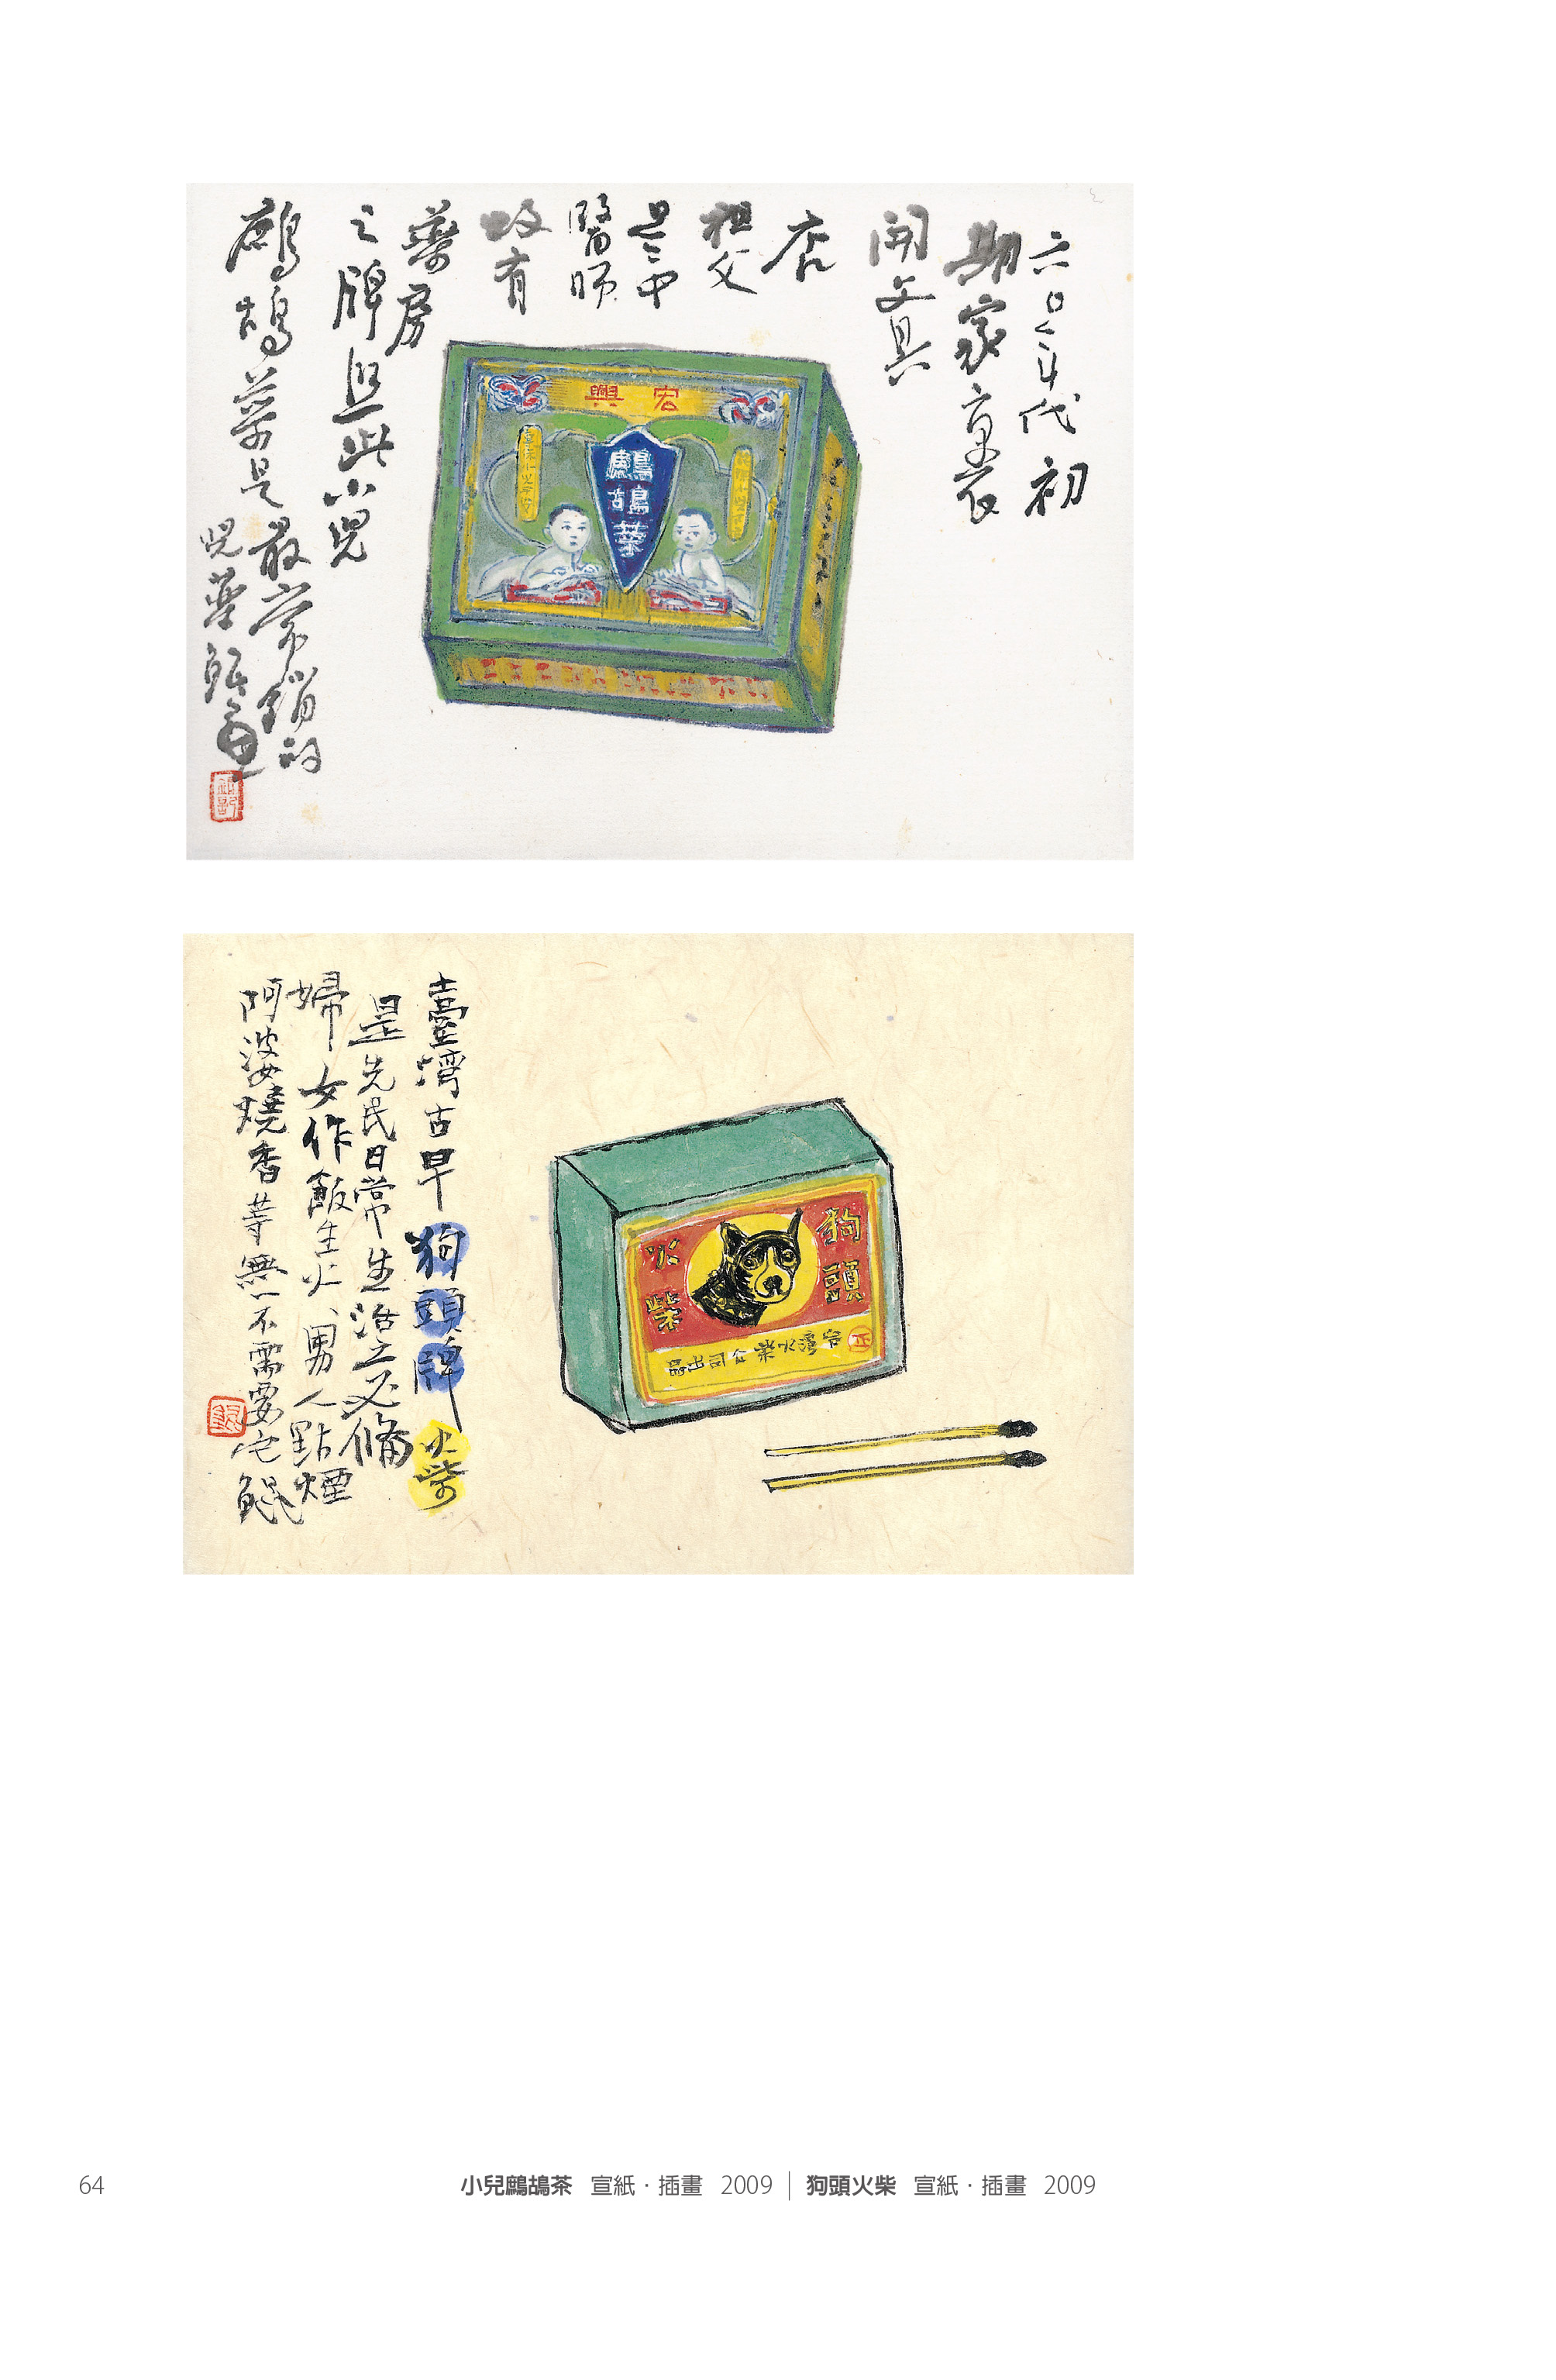 六〇年代初
期家裏
開文具
店
祖父
是中
醫師
故有
藥房
之牌 此小兒
鷓鴣菜是最常銷的
兒藥
宏興
鷓鴣菜
臺灣古早狗頭牌火柴
是先民日常生活之必備
婦女作飯生火、男人點煙
阿婆燒香等無一不需要它 鯤
狗頭
火柴
正
台灣火柴公司出品
64
小兒鷓鴣茶 宣紙・插畫 2009 | 狗頭火柴 宣紙・插畫 2009